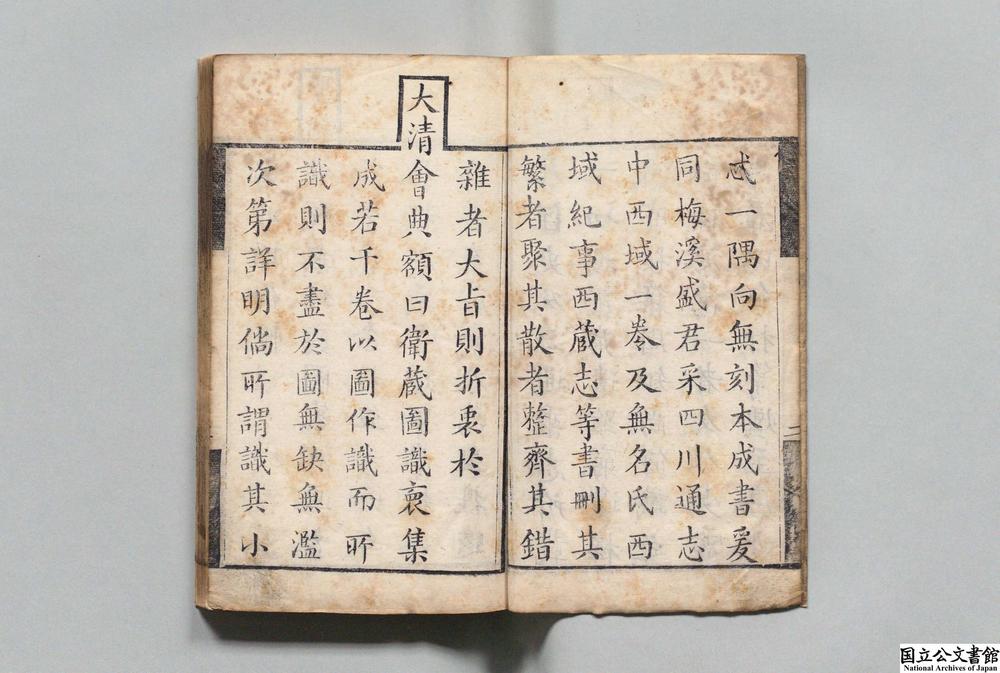 忒一隅向無刻本成書爰
同梅溪盛君采四川通志
中西域一卷及無名氏西
域紀事西藏志等書刪其
繁者聚其散者整齊其錯
雜者大旨則折衷於
大清
會典額曰衛藏圖識裒集
成若干卷以圖作識而所
識則不盡於圖無缺無濫
次第詳明倘所謂識其小
二
国立公文書館
National Archives of Japan